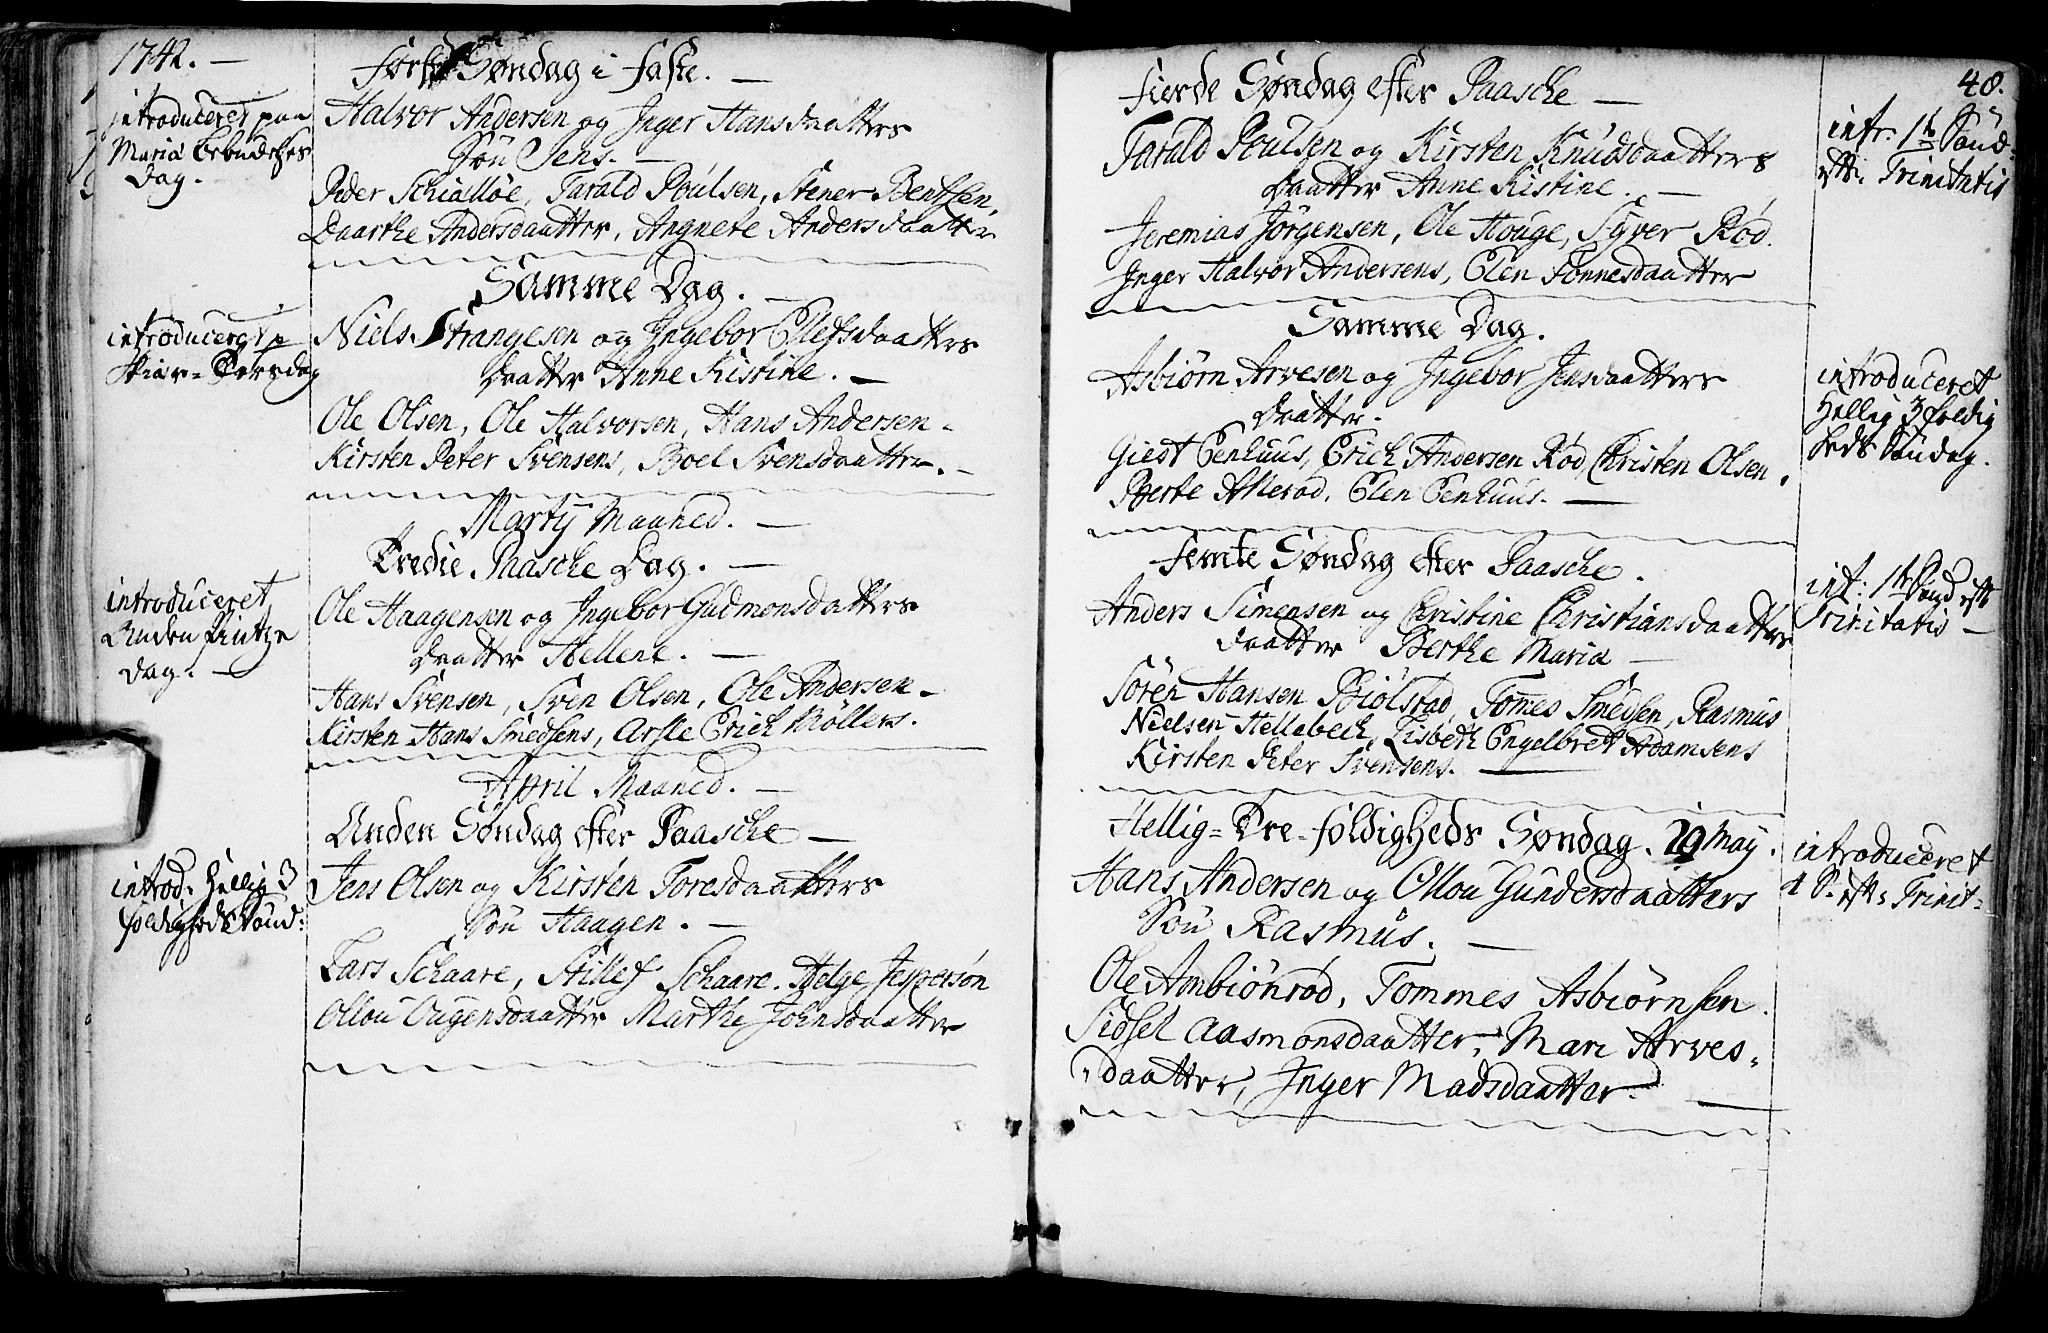 1742. —
Første Søndag i Faste. —
introduceret paa
Mariæ Bebudelses
Dag. —
Halvor Andersen og Inger Hansdaatters
Søn Jens. —
Peder Schialløe, Tarald Poulsen, Stener Bentsen,
Daarthe Andersdaatter, Angnete Andersdaatter
Samme Dag. —
introduceret p
Skiær-Torsdag
Niels Strangesen og Ingebor Ellefsdaatters
Daatter Anne Kistine. —
Ole Olsen, Ole Halvorsen, Hans Andersen -
Kirsten Peter Svensens, Boel Svensdaatter. -
Martij Maaned. —
Tredie Paasche Dag. —
introduceret
Anden Pintze
Dag. —
Ole Haagensen og Ingebor Gudmonsdatters
Daatter Hellene. —
Hans Svensen, Sven Olsen, Ole Andersen -
Kirsten Hans Smedsens, Erich Møllers.
April Maaned. —
Anden Søndag efter Paasche —
introd: Hellig 3
foldigheds Sønd:
Jens Olsen og Kirsten Toresdaatters
Søn Haagen. —
Lars Schaare, Stillef Schaare. Helge Jespersøn
Ollou Ougensdaatter Marthe Johnsdaatter
48.
Fierde Søndag efter Paasche —
intr: 1te Sønd:
eft: Trinitatis
Tarald Poulsen og Kirsten Knudsdaatters
Daatter Anne Kistine. —
Jeremias Jørgensen, Ole Houge, Syver Rød.
Inger Halvor Andersens, Elen Tonnesdaatter
Samme Dag.
introduceret
Hellig 3 foldig
heds Søndag.
Asbiørn Arvesen og Ingebor Jensdaatters
Daatter.
Giest Eenhuus, Erich Andersen Rød, Christen Olsen,
Berte Allerød, Elen Eenhuus. —
Femte Søndag efter Paasche.
int: 1te Sønd eft
Trinitatis —
Anders Simensen og Christine Christiansdaatters
Daatter Berthe Maria —
Søren Hansen Biølstad, Tomes Smedsen, Rasmus
Nielsen Hellebech, Lisbeth Engelbret Adamsens
Kirsten Peter Svensens. —
Hellig-Tre-foldigheds Søndag. 20 May.
introduceret
1 S. eft: Trinit:
Hans Andersen og Ollou Gundersdaatters
Søn Rasmus. —
Ole Ambiønrød, Tommes Asbiørnsen.
Sidsel Aasmonsdaatter, Mari Arves-
daatter, Inger Madsdaatter. —